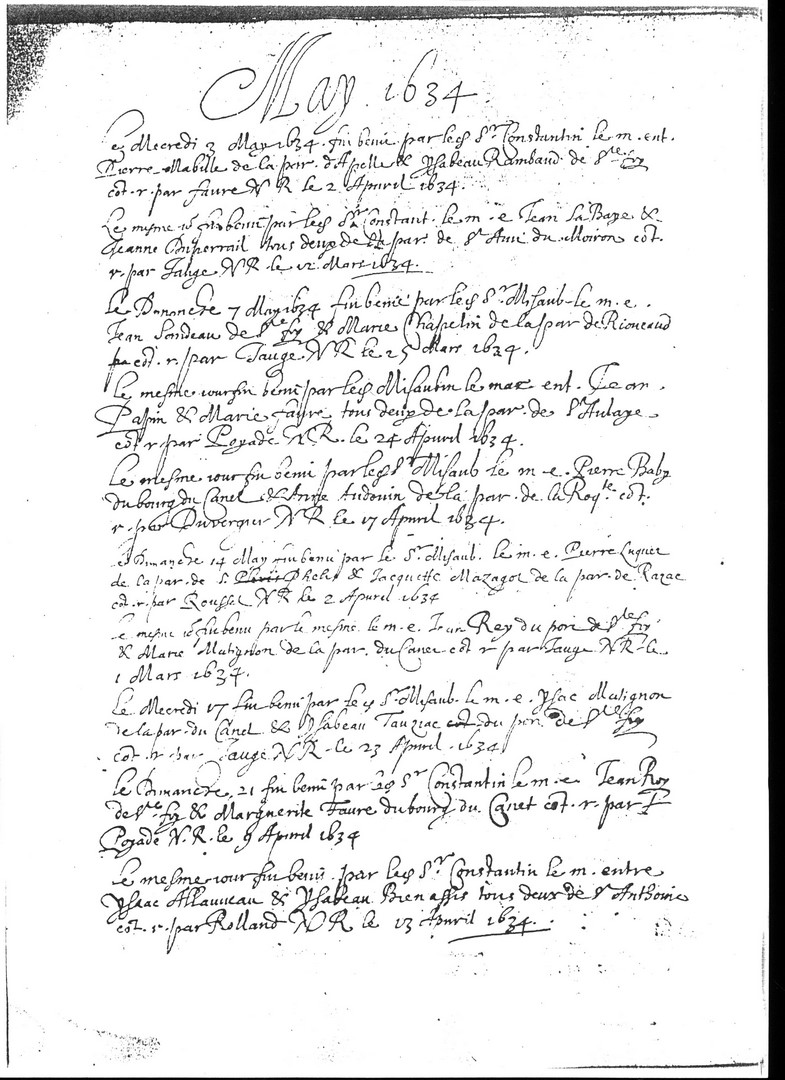 May 1634
e Mecredi 3 May 1634. fut beni par led Sr. Constantin le m. ent.
Pierre Mabille de la par. d'Apelle & Ysabeau Rambaud de Ste fy
cot. r. par faure N R le 2 Apuril 1634.
Le mesme io fut beni par led Sr Constant. le m. e Jean La Baye &
Jeanne tous deux de la par. de St Avi du Moiron cot.
r. par Jauge N R. le 12 Mars 1634.
le Dimanche 7 May 1634 fut beni par led Sr. Misaub. le m. e.
Jean Sondeau de Ste fy & Marie Chapelin de la par de Riocaud
cot. r. par Jauge N R le 25 Mars 1634.
le mesme iour fut beni par led Misaubin le mar ent. Jean
Papin & Marie faure tous deux de la par. de St Aulaye
cot r par Poyade N. R. le 24 Apuril 1634.
le mesme iour fut beni par led Sr Misaub le m. e. Pierre Baby
du bourg du Canet & Anne Audouin de la par. de la Roqte. cot.
r. par Duvergier N R le 17 Apuril 1634.
e Dimanche 14 May fut beni par le Sr. Misaub. le m. e. Pierre Luquet
de la par. de S. Phelip & Jacquette Mazagot de la par. de Razac
cot. r. par Roussel N R le 2 Apuril 1634
e mesme io fut beni par le mesme le m. e. Jean Rey du port de Ste fy
& Marie Mutignon de la par. du Canet cot r par Jauge N R. le
1 Mars 1634.
Le Mecredi 17 fut beni par led Sr. Misaub. le m. e. Ysac Mutignon
de la par. du Canet & Ysabeau Tauziac du port de Ste fy
cot. r. par Jauge N R. le 23 Apuril 1634
le Dimanche 21 fut beni par led Sr Constantin le m. e Jean Roy
de Ste fy & Marguerite Faure du bourg du Canet cot. r. par P
Poyade N. R. le 9 Apuril 1634
le mesme iour fut beni par led Sr. Constantin le m. entre
Ysaac Allauveau & Ysabeau Bienassis tous deux de St Anthoine
cot. r. par Rolland N R le 13 Apuril 1634.